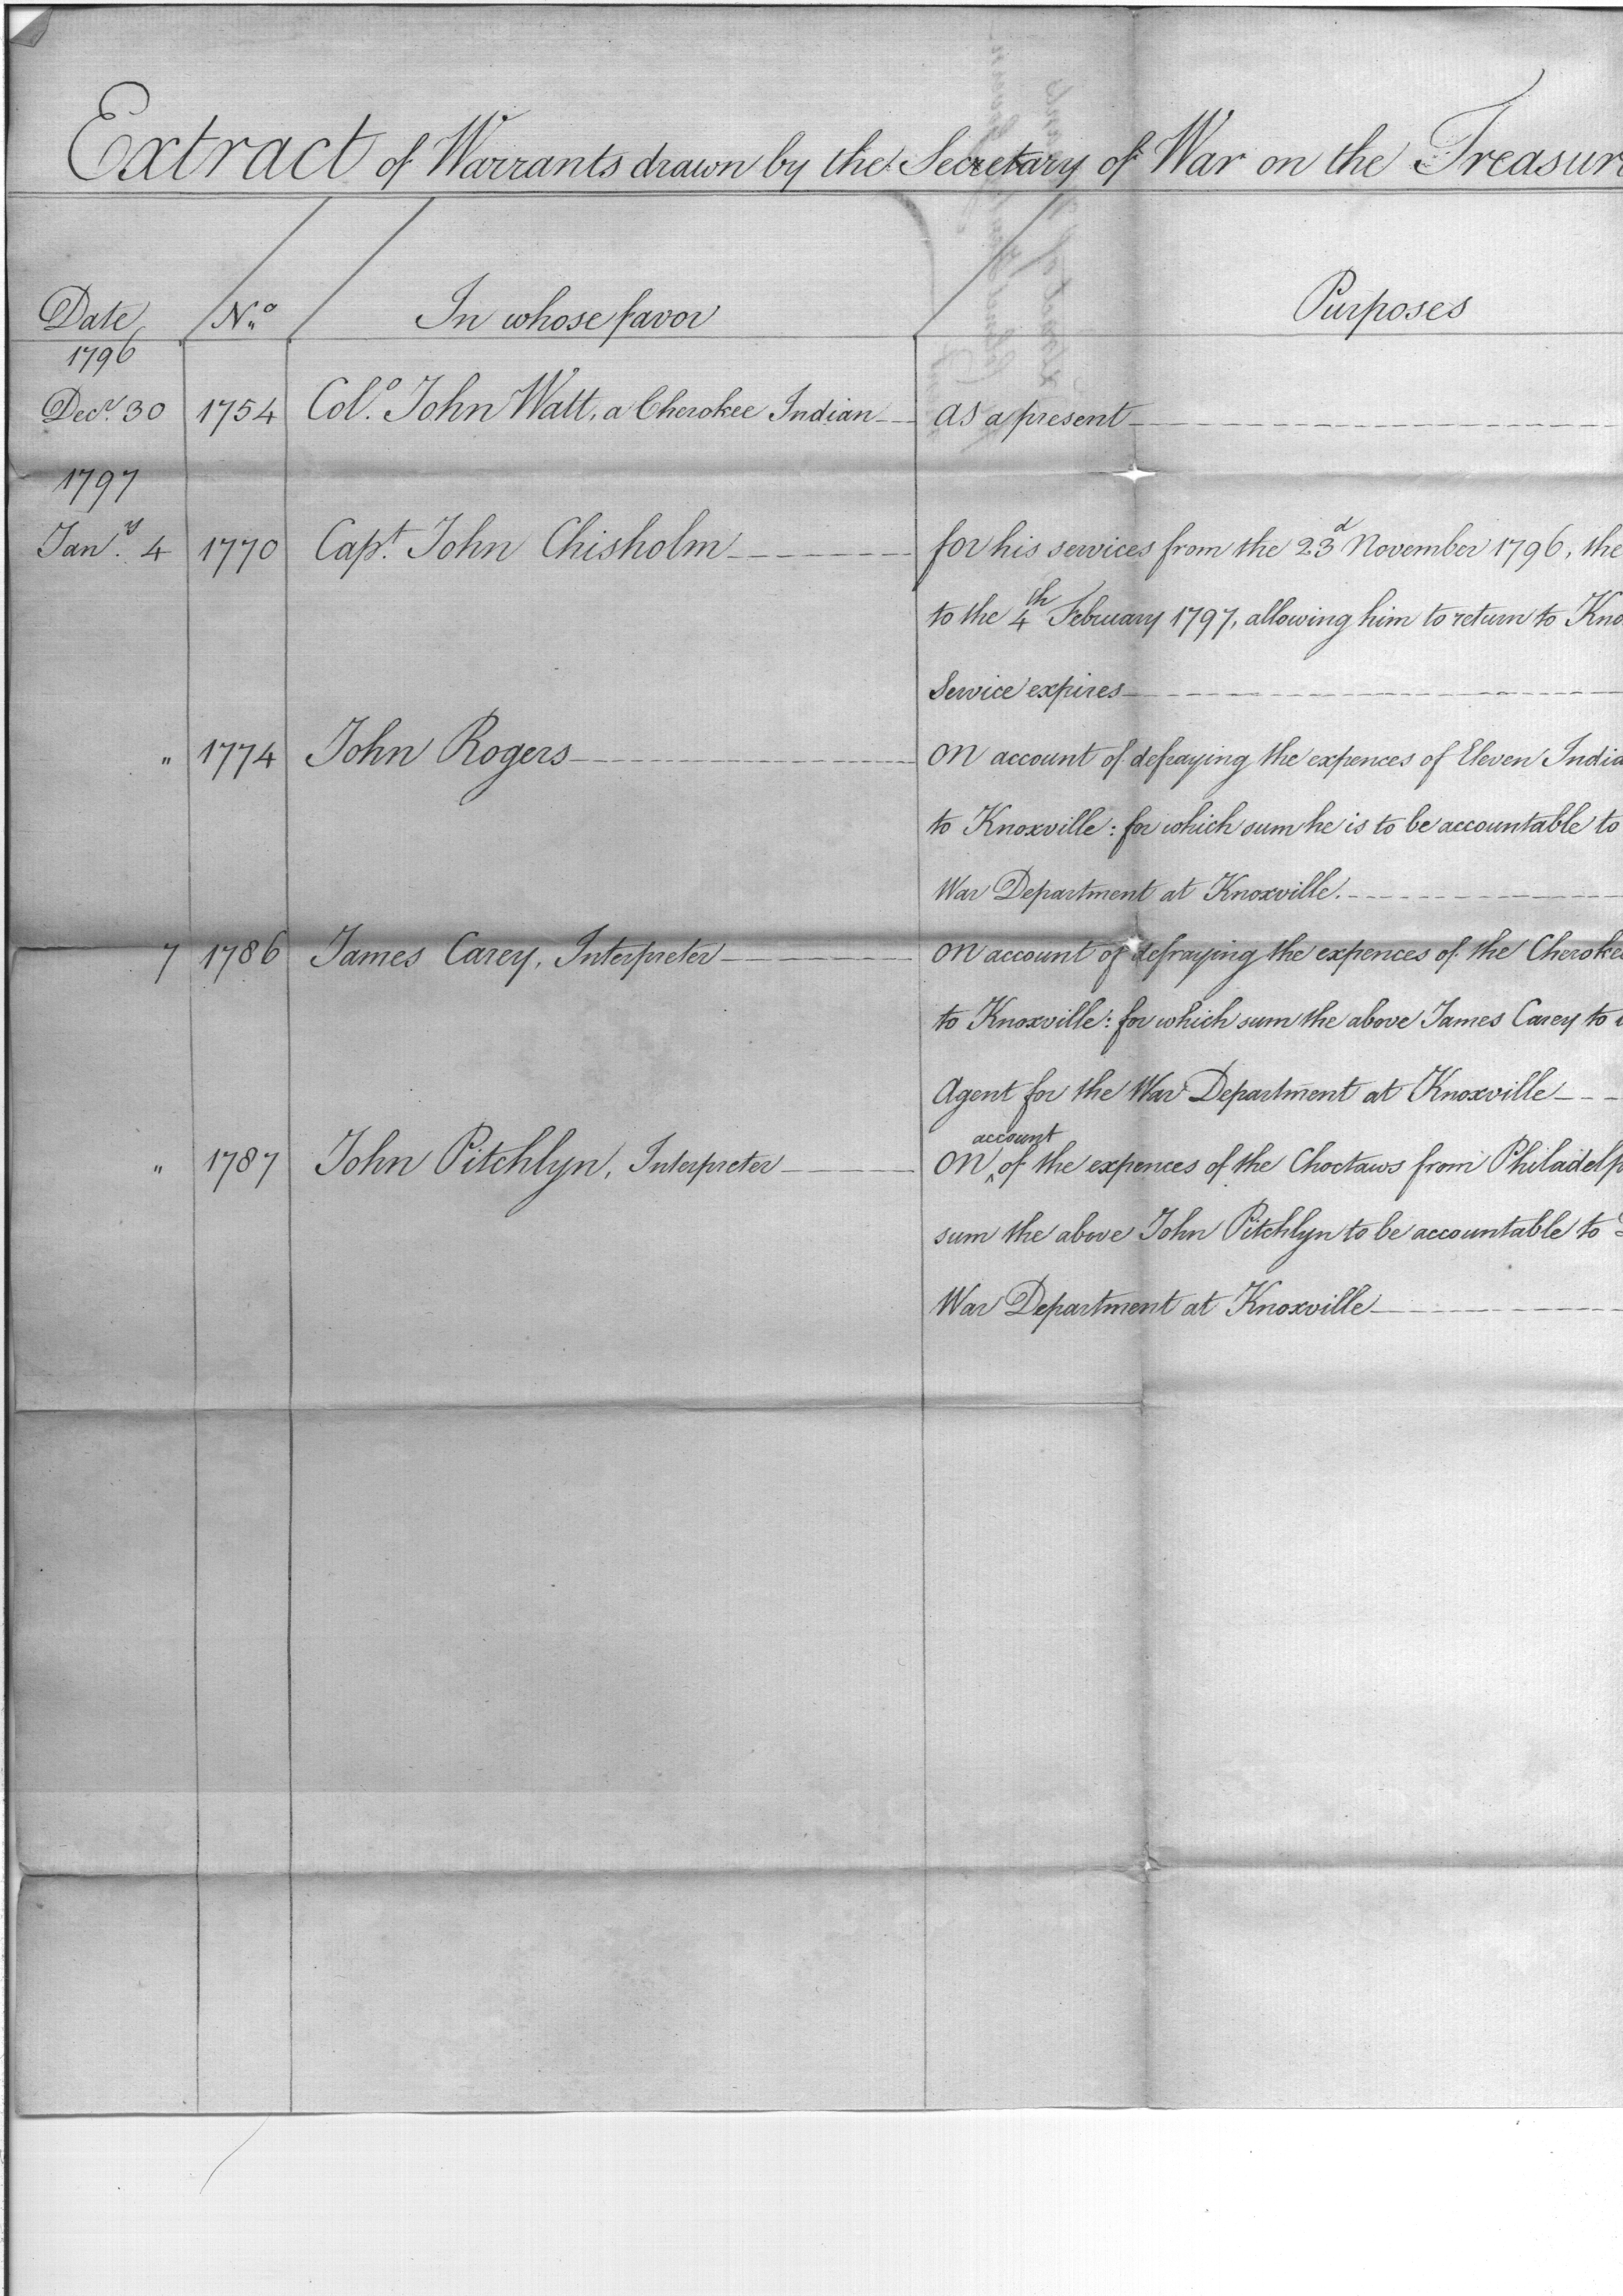 Extract of Warrants drawn by the Secretary of War on the Treasur
Date No. In whose favor Purposes
1796
Decr. 30 1754 Colo. John Watt, a Cherokee Indian as a present
1797
Jany. 4 1770 Capt. John Chisholm for his services from the 23d November 1796, the
to the 4th February 1797, allowing him to return to Kno
Service expires
" 1774 John Rogers on account of defraying the expences of Eleven India
to Knoxville: for which sum he is to be accountable to
War Department at Knoxville.
7 1786 James Carey, Interpreter on account of defraying the expences of the Cheroke
to Knoxville: for which sum the above James Carey to
Agent for the War Department at Knoxville
" 1787 John Pitchlyn, Interpreter on account of the expences of the Choctaws from Philadelp
sum the above John Pitchlyn to be accountable to
War Department at Knoxville